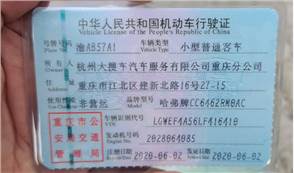 中华人民共和国机动车行驶证
Vehicle License of the People's Republic of China
渝AB57A1 车辆类型 小型普通客车
所有人 杭州大搜车汽车服务有限公司重庆分公司
重庆市江北区建新北路16号27-15
非营运 品牌型号 哈弗牌CC6462RM0AC
重庆市公
安局交通
管理局
车辆识别代号 LGWEF4A56LF416410
发动机号码 2028064085
注册日期 2020-06-02 发证日期 2020-06-02